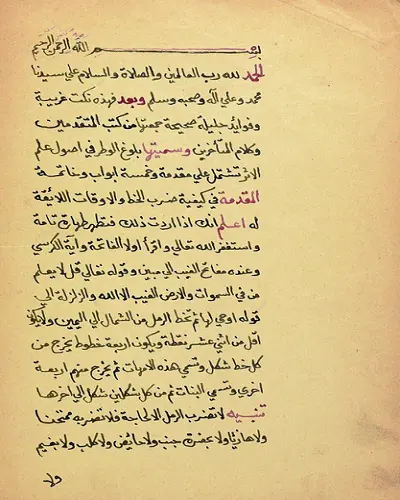 بسم الله الرحمن الرحيم
الحمد لله رب العالمين والصلاة والسلام علي سيدنا
محمد وعلي آله وصحبه وسلم وبعد فهذه نكت غريبة
وفوايد جليلة صحيحة جمعتها من كتب المتقدمين
وكلام المتأخرين وسميتها بلوغ الوطر في اصول علم
الاثر تشتمل علي مقدمة وخمسة ابواب وخاتمة
المقدمة في كيفية ضرب الخط والاوقات اللايقة
له اعلم انك اذا اردت ذلك فتطهر طهارة تامة
واستغفر الله تعالي واقرأ اولا الفاتحة واية الكرسي
وعنده مفاتح الغيب الي مبين وقوله تعالي قل لا يعلم
من في السموات والارض الغيب الا الله والزلزلة الي
قوله اوحي لها ثم تخط الرمل من الشمال الي اليمين ولا يكون
اقل من اثني عشر نقطة ويكون اربعة خطوط يخرج من
كل خط شكل وتسمي هذه الامهات ثم يخرج منهم اربعة
اخري وتسمي البنات ثم من كل شكلين شكل الي اخرها
تنبيه لا تضرب الرمل الا لحاجة فلا تضربه ممتحنا
ولا هازيا ولا بحضرة جنب ولا حائض ولا كلب ولا بغيم
ولا